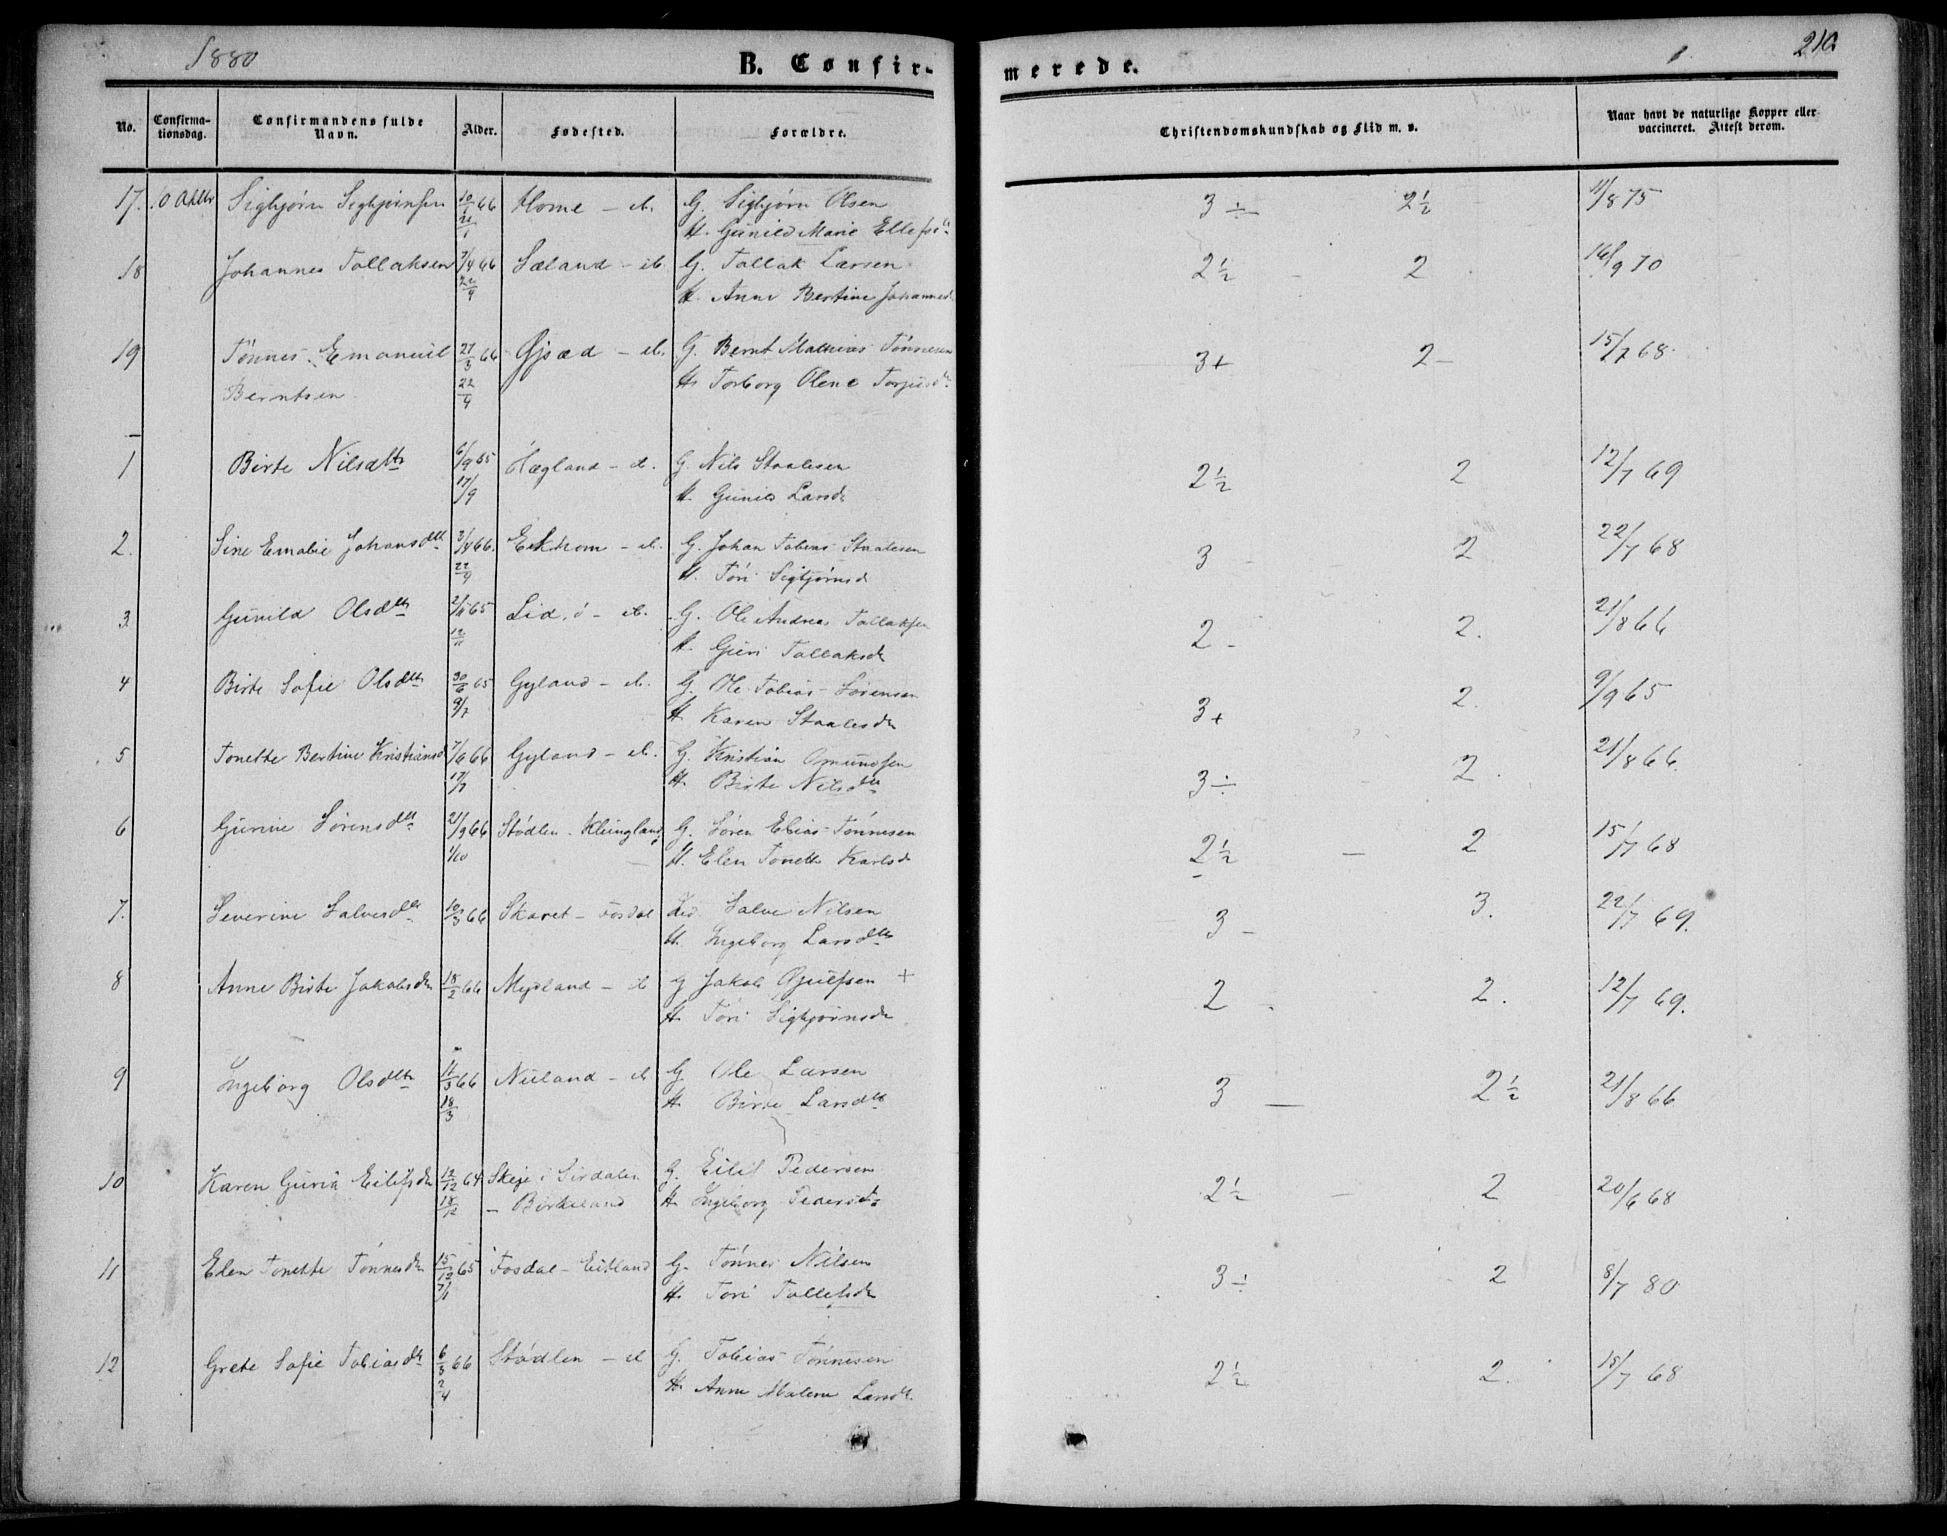 1880 B. Confirmerede. 210
No. Confirmationsdag. Confirmandens fulde Navn. Alder. Fødested. Forældre. Christendomskundskab og Flid m. v. Naar havt de naturlige Kopper eller vaccineret. Attest derom.
17. 10 Oktbr Sigbjørn Sigbjørnsen 10/1 66 Home - ib. G. Sigbjørn Olsen 3 ÷ 2½ 11/8 75
H. Gunild Marie Ellefsd
18 Johannes Tallaksen 7/4 66 Sæland - ib. G. Tallak Larsen 2½ - 2 16/9 70
22/4 H. Anne Bertine Johannesd
19 Tønnes Emanuel 27/3 66 Gjsæd - ib. G. Bernt Mathias Tønnesen 3+ 2- 15/7 68
Berntsen 22/4 H. Torborg Olene Torjusd
1 Birte Nilsdtr 6/9 65 Hægland - ib. G. Nils Staalesen 2½ 2 12/7 69
17/9 H. Gunild Larsd
2. Sine Emalie Johansdtr 3/4 66. Ekhom - ib. G. Johan Tobias Staalesen 3 - 2 22/7 68
22/4 H. Tori Sigbjørnsd
3 Gunild Olsdtr 2/11 65 Lid, ø - ib. G. Ole Andreas Tallaksen 2 - 2. 21/8 66
12/11 H. Guri Tallaksd
4 Birte Sofie Olsdtr 30/6 65 Gyland - ib. G. Ole Tobias Sørensen 3+ 2. 9/9 65
9/7 H. Karen Staalesd
5 Tonette Bertine Kristiansd 7/6 66 Gyland - ib. G. Kristian Omundsen 3 ÷ 2. 21/8 66.
17/7 H. Birte Nilsdtr
6 Gurine Sørensdtr 21/9 66 Stødlen - Kleungland G. Søren Elias Tønnesen 2½ - 2 15/7 68
1/10 H. Elen Tonette Karlsd
7. Severine Salvesdtr 10/3 66 Skaret - Fosdal Salve Nilsen 3 - 3. 22/7 69.
H. Ingeborg Larsdtr
8 Anne Birte Jakobsdtr 18/2 66 Mysland - ib G Jakob Gjulfsen + 2 - 2. 12/7 69.
H. Tori Sigbjørnsd
9 Ingeborg Olsdtr 11/3 66 Nuland - ib G Ole Larsen 3 - 2½ 21/8 66
18/3 H. Birte Larsdtr
10 Karen Guria Eilifsdtr 12/12 64 Skeje i Sirdalen G. Eilif Pedersen 2½ - 2 20/6 68
18/12 - Birkeland H. Ingeborg Pedersdtr
11 Elen Tonette Tønnesdtr 15/12 65 Fosdal - Eitland G. Tønnes Nilsen 3 ÷ 2 8/7 80
7/1 H. Tori Tollefsdtr
12 Grete Sofie Tobiasdtr 6/3 66 Stødlen - ib G. Tobias Tønnesen 2½ 2. 15/7 68
2/4 H. Anne Malene Larsdtr